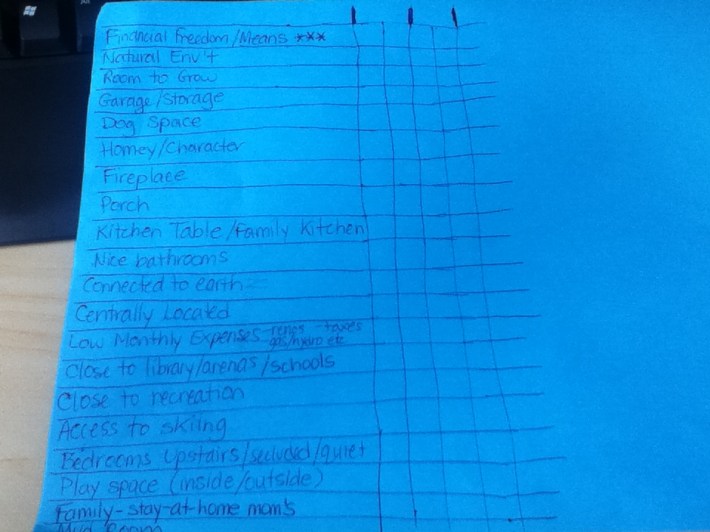 Financial Freedom/Means ***
Natural Env't
Room to Grow
Garage/Storage
Dog Space
Homey/Character
Fireplace
Porch
Kitchen Table/Family Kitchen
Nice bathrooms
Connected to earth
Centrally Located
Low Monthly Expenses - renos - taxes
gas/hydro etc
Close to library/arenas/schools
Close to recreation
Access to skiing
Bedrooms Upstairs/secluded/quiet
Play space (inside/outside)
Family-stay-at-home mom's
Mud Room